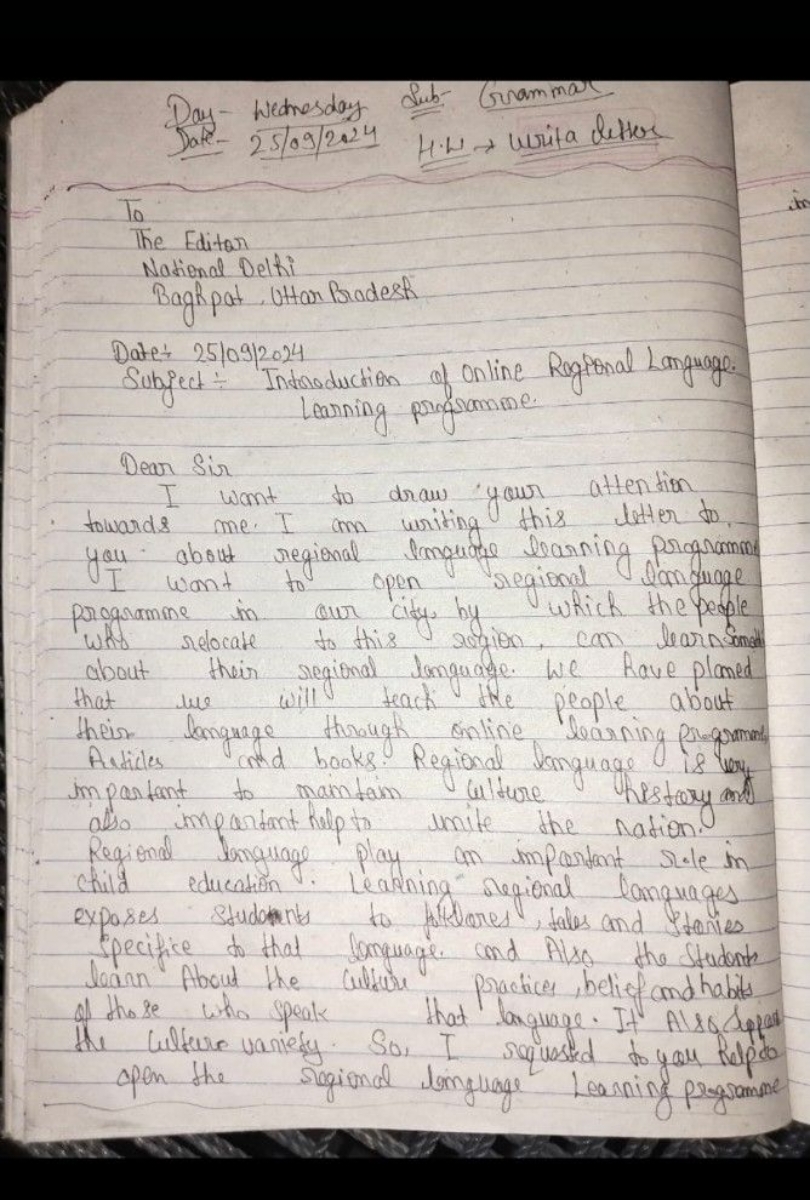 Day- Wednesday Sub- Grammar
Date- 25/09/2024 H.W → Writa letter
To
The Editor
National Delhi
Baghpat, Uttar Pradesh
Date:- 25/09/2024
Subject :- Introduction of Online Regional Language.
Learning programme.
Dear Sir
I want to draw your attention
towards me. I am writing this letter to,
you about regional language learning programme
I want to open regional language
programme in our city, by which the people
who relocate to this region, can learn
about their regional language. We have planed
that we will teach the people about
their language through online learning programme,
Articles and books. Regional language is very
important to maintain culture history and
also important help to unite the nation.
Regional language play an important role in
child education. Learning regional languages
exposes to folklores, tales and stories
specifice to that language. and Also the students
learn About the culture practices, belief and habits
of those who speak that language. It Also Support
the culture variety. So, I requested to you help to
open the regional language Learning programme